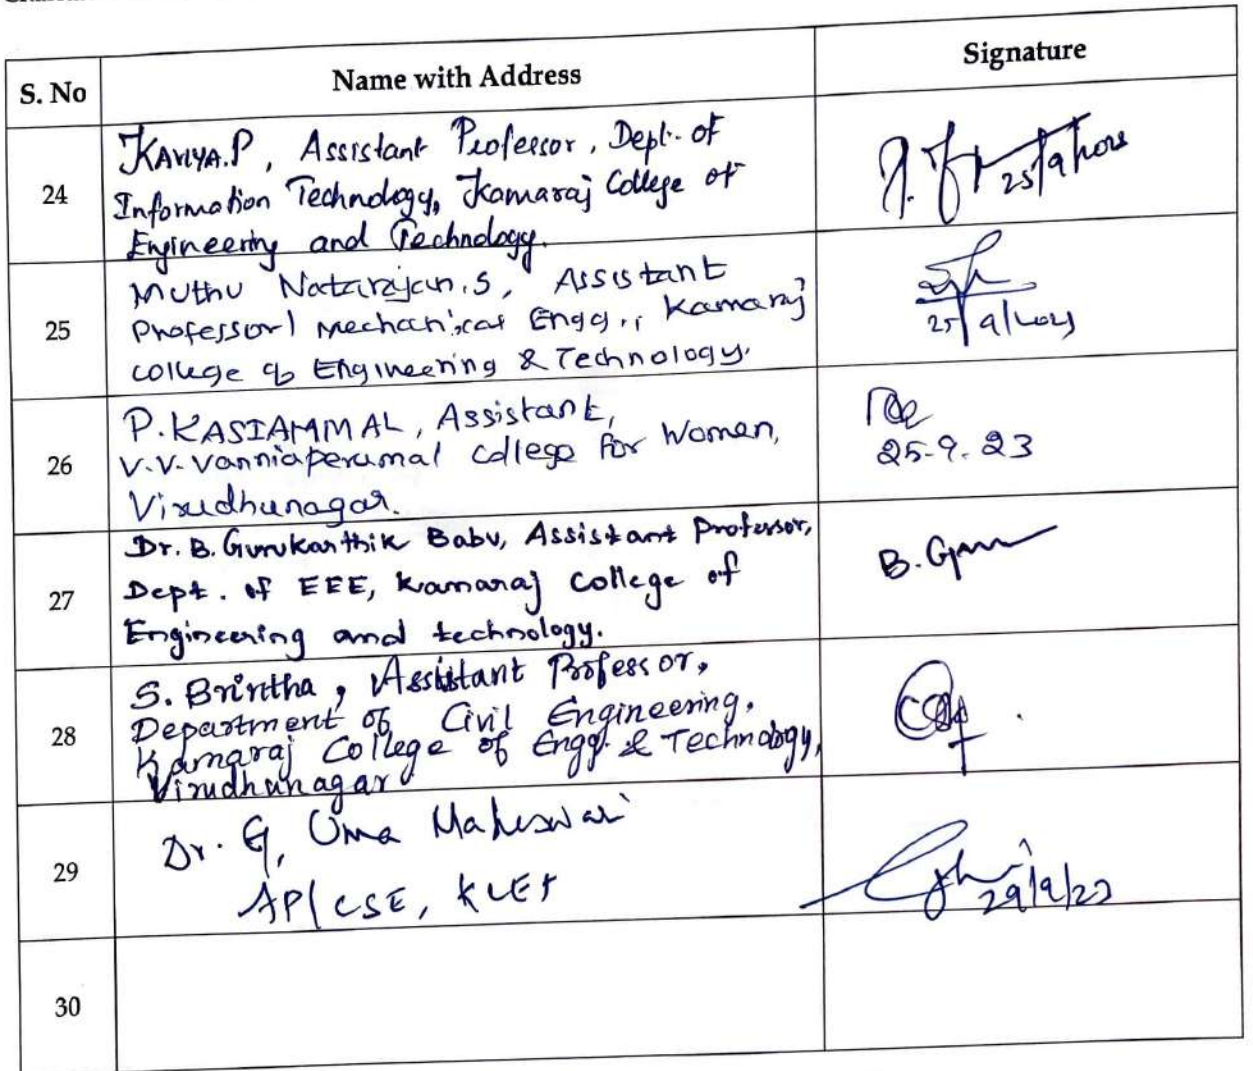 S. No Name with Address Signature
24
KAVIYA.P, Assistant Professor, Dept. of
Information Technology, Kamaraj College of
Engineering and Technology.
25/9/2023
25
Muthu Natarajan.S, Assistant
Professor/ Mechanical Engg., Kamaraj
college of Engineering & Technology.
25/9/2023
26
P.KASIAMMAL, Assistant,
V.V.Vanniaperumal College for Women,
Virudhunagar.
25.9.23
27
Dr. B. Gurukarthik Babu, Assistant Professor,
Dept. of EEE, Kamaraj College of
Engineering and technology.
B.
28
S. Brintha, Assistant Professor,
Department of Civil Engineering,
Kamaraj College of Engg. & Technology,
Virudhunagar
29
Dr. G, Uma Maheswari
AP/CSE, KCET
29/9/23
30